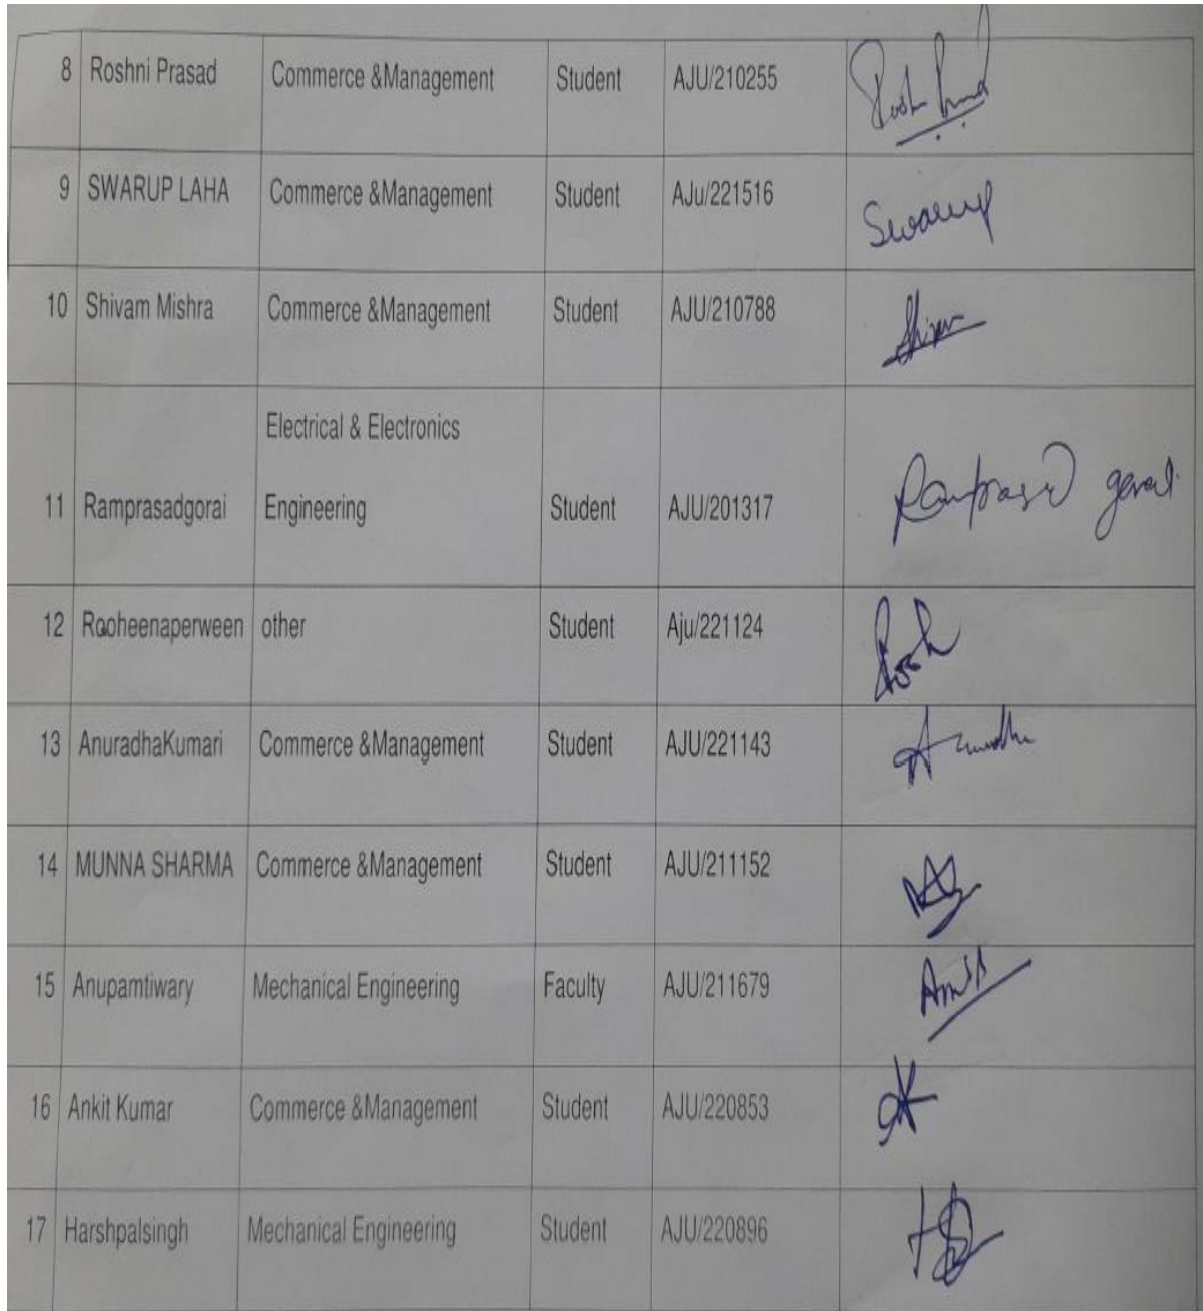 8 Roshni Prasad Commerce &Management Student AJU/210255
9 SWARUP LAHA Commerce &Management Student AJu/221516 Swarup
10 Shivam Mishra Commerce &Management Student AJU/210788 Shivam
Electrical & Electronics
11 Ramprasadgorai Engineering Student AJU/201317 Ramprasad gorai
12 Rooheenaperween other Student Aju/221124 Rooh
13 AnuradhaKumari Commerce &Management Student AJU/221143 Anuradha
14 MUNNA SHARMA Commerce &Management Student AJU/211152
15 Anupamtiwary Mechanical Engineering Faculty AJU/211679
16 Ankit Kumar Commerce &Management Student AJU/220853
17 Harshpalsingh Mechanical Engineering Student AJU/220896